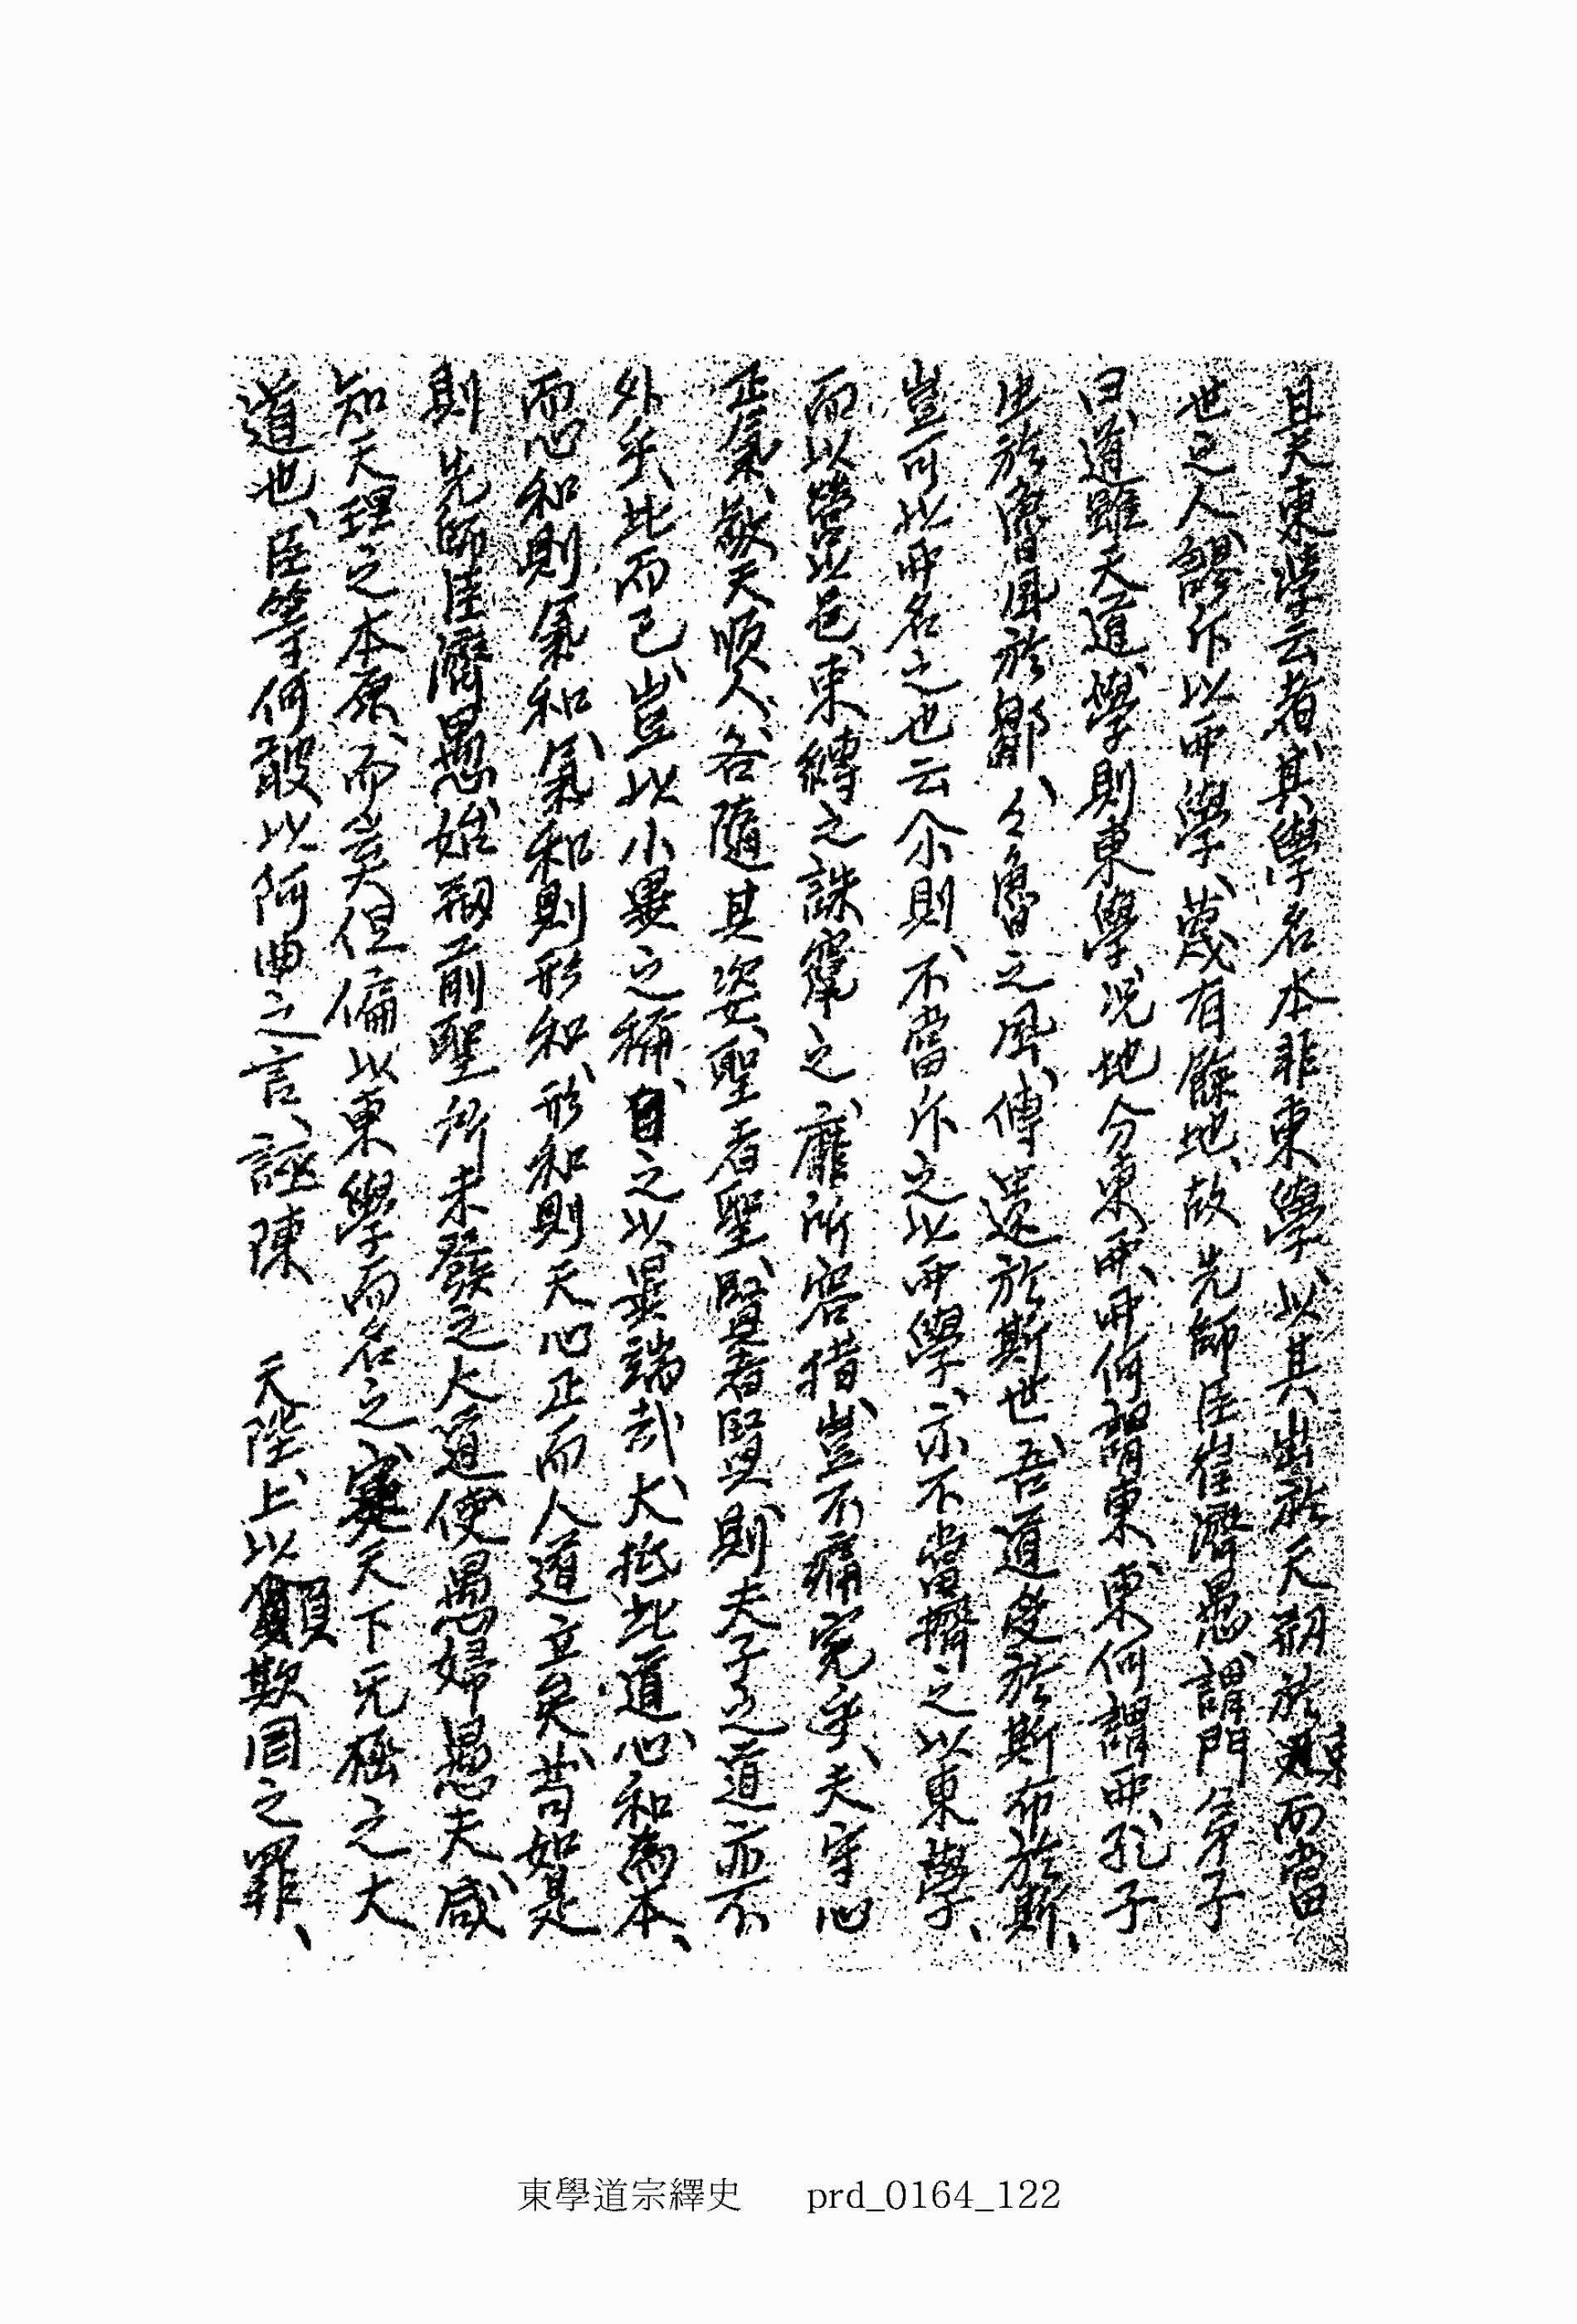 且夫東學云者、其學名本非東學、以其出於天刱於東而當
世之人、謬斥以西學、蔑有餘地、故 先師臣崔濟愚、謂門弟子
曰、道雖天道、學則東學、况地分東西、西何謂東、東何謂西、孔子
生於魯風於鄒、々魯之風、傳遺於斯世、吾道受於斯布於斯、
豈可以西名之也云、尒則、不當斥之以西學、亦不當擠之以東學、
而以營以邑、束縛之誅竄之、靡所容措、豈不痛寃乎、夫守心
正氣、敬天順人、各隨其姿、聖者聖、賢者賢、則夫子之道亦不
外乎、此而已、豈以小異之稱、目之以異端哉、大抵此道、心和爲本、
而心和則氣和、氣和則形和、形和則天心正而人道立矣、苟如是
則 先師臣濟愚、始刱前聖所未發之大道、使愚婦愚夫、咸
知天理之本原、而奚但偏以東學而名之、寔天下无極之大
道也、臣等何敢以阿曲之言、誣陳 天陛、上以 欺罔之罪、
東學道宗繹史 prd_0164_122